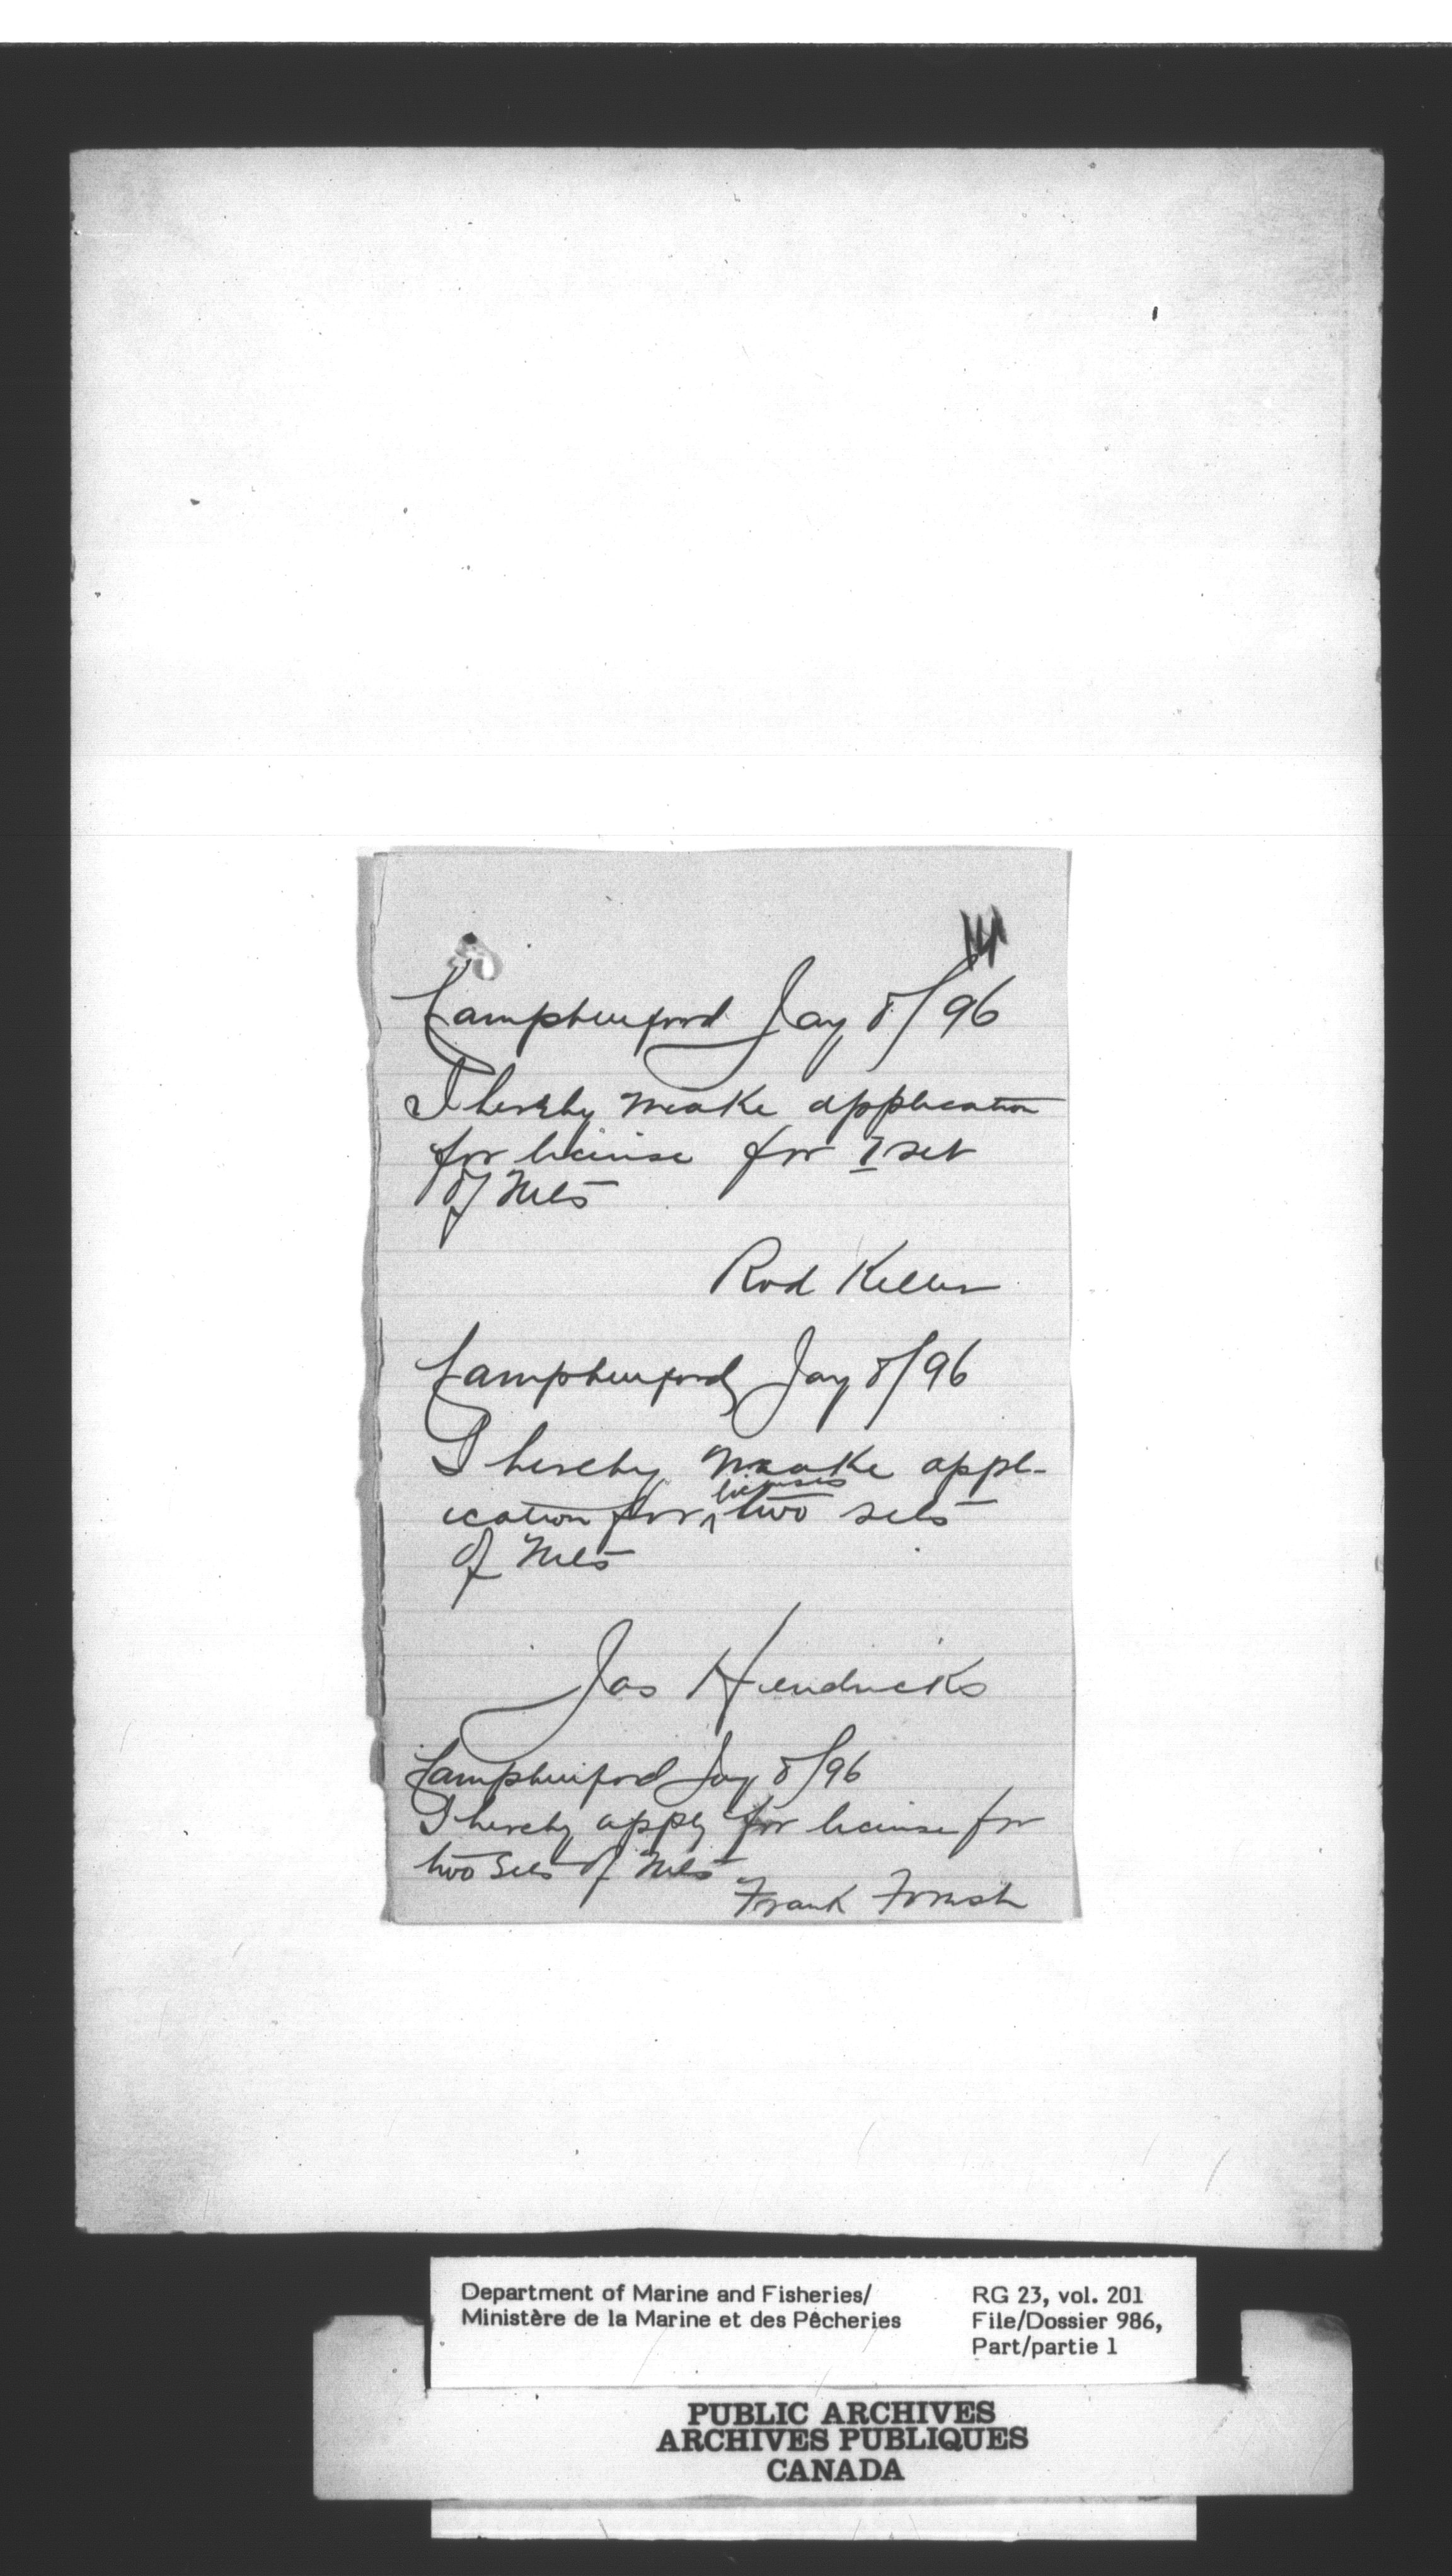 Jany 8/96
I hereby make application
for license for 1 set
of Nets
Rod Keller
Jany 8/96
I hereby make appl-
ication for licenses two sets
of Nets
Jas Hendricks
Jany 8/96
I hereby apply for license for
two Sets of Nets
Frank
Department of Marine and Fisheries/
Ministère de la Marine et des Pêcheries
RG 23, vol. 201
File/Dossier 986,
Part/partie 1
PUBLIC ARCHIVES
ARCHIVES PUBLIQUES
CANADA